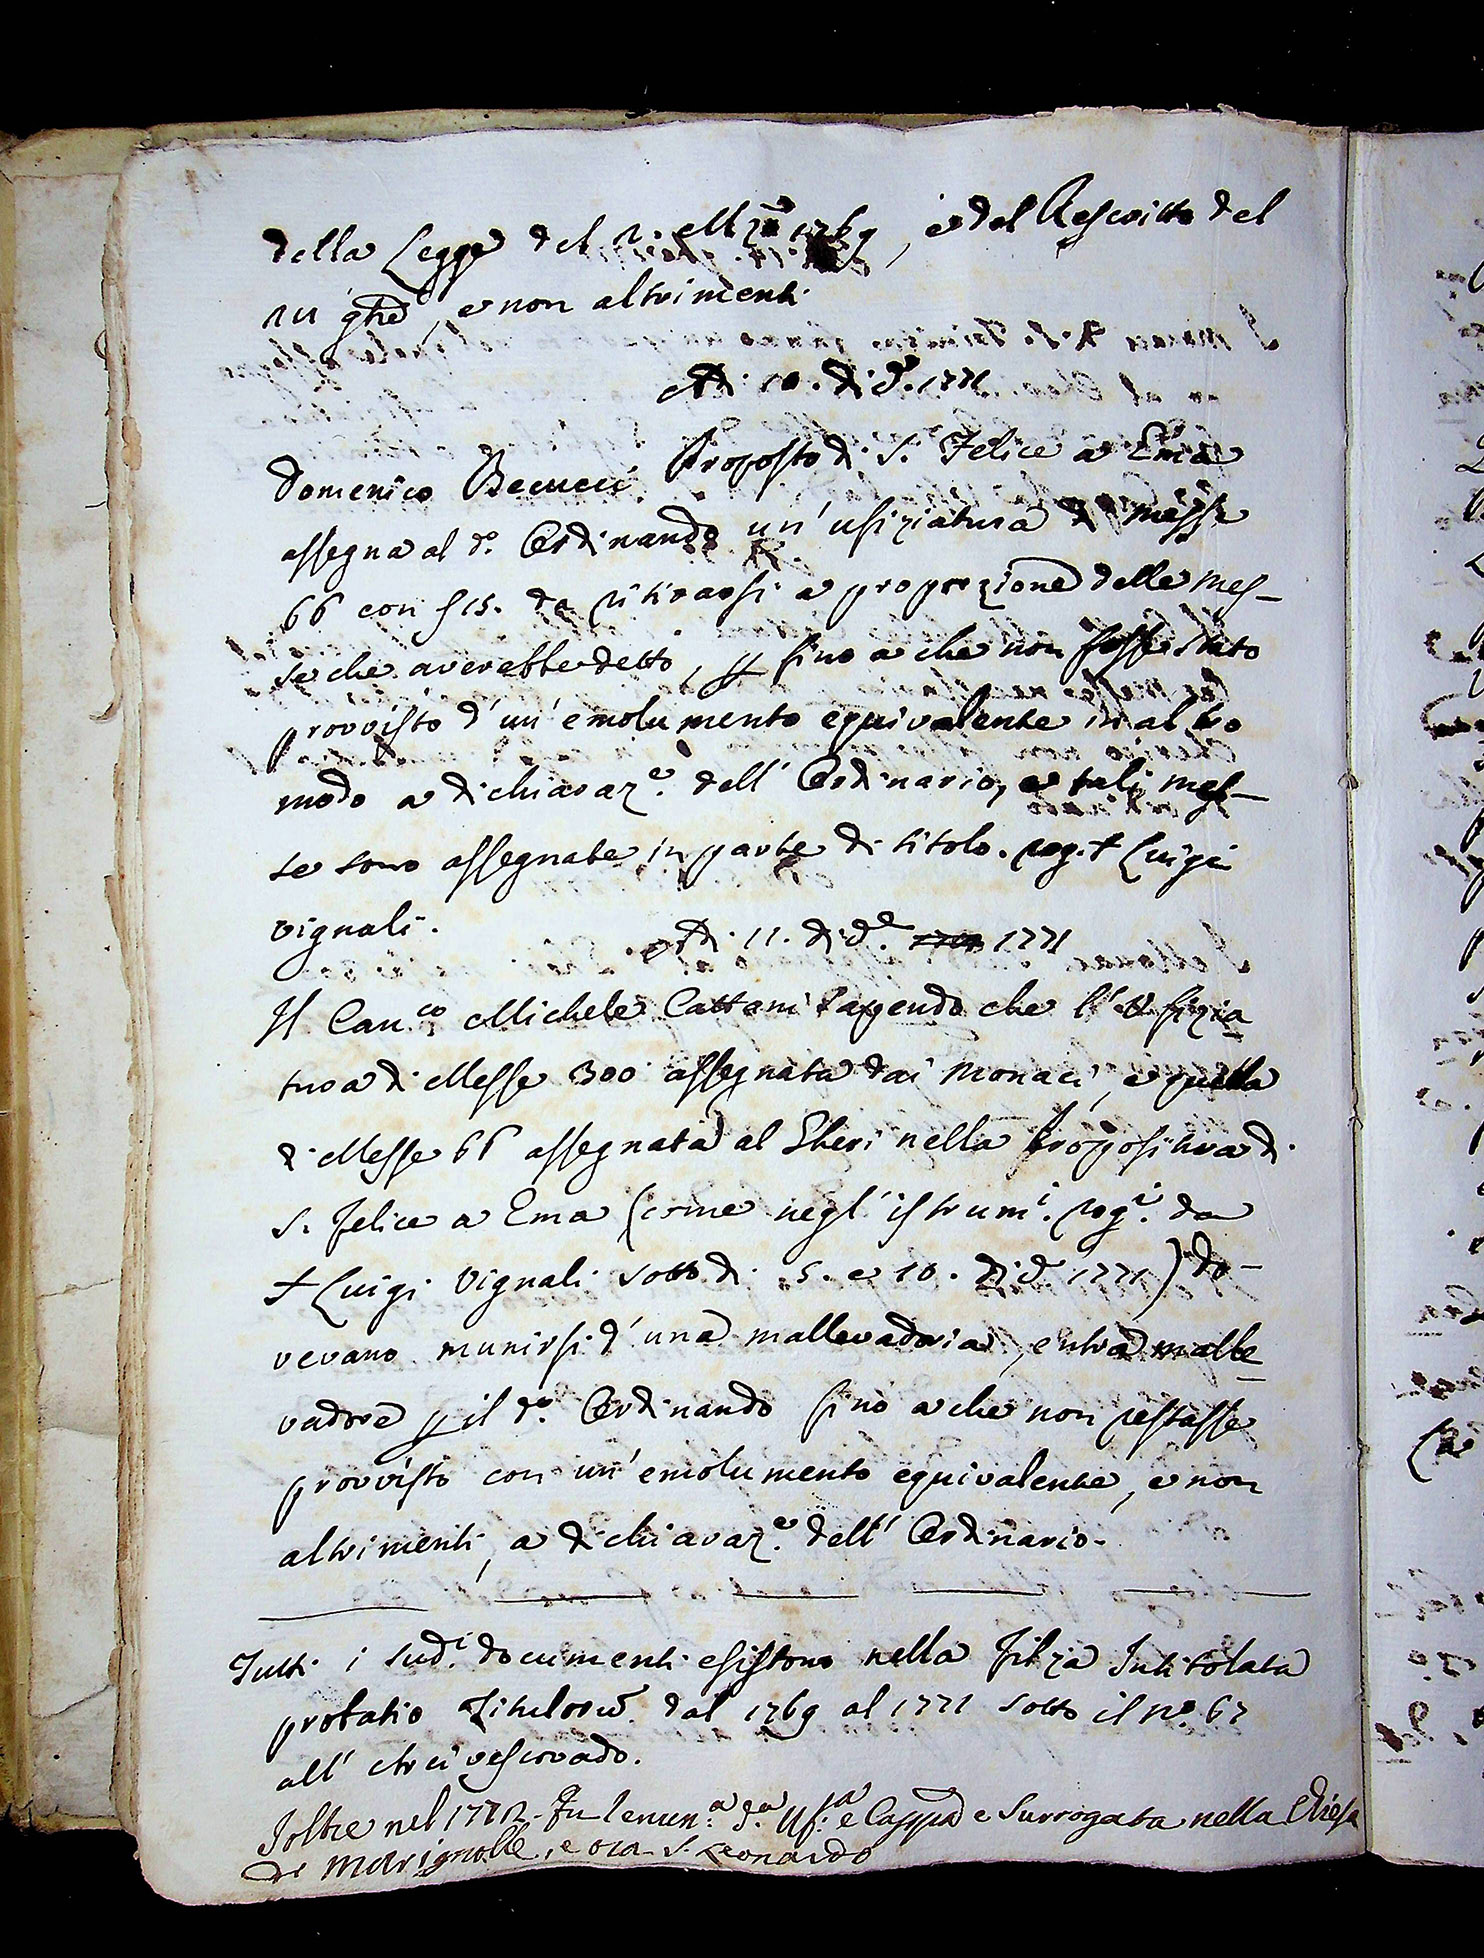 della Legge del 2. Mzo 1769, e del Rescritto del
gñe, e non altrimenti.
Adi 10. di d.e 1771
Domenico Becucci Proposto di S. Felice a Ema
assegna al d.o Ordinando un' ufiziatura di messe
66 con s 15. da ritirarsi a proporzione delle mes-
se che averebbe detto, p fino a che non fosse stato
provvisto d'un' emolumento equivalente in altro
modo a dichiaraz.e dell' Ordinario, e tali mes-
se sono assegnate in parte di titolo. rog. + Luigi
Vignali.
Adi 11. di d.e 1771
Il Can.co Michele Cattani sapendo che l' Ufizia
tura di Messe 300 assegnata dai Monaci, e quella
di Messe 66 assegnata al Sheri nella Propositura di
S. Felice a Ema (come negl' istrum.i rog.i da
+ Luigi Vignali sotto di 5. e 10. di d.e 1771) do-
vevano munirsi d' una mallevadoria, entra malle
vadore p il d.o Ordinando fino a che non restasse
provvisto con un' emolumento equivalente, e non
altrimenti, a dichiaraz.e dell' Ordinario.
Tutti i sud.i documenti esistono nella filza Intitolata
probatio Titulorū dal 1769 al 1771 sotto il n.o 67
all' Arcivescovado.
Joltre nel 1772. Fu l'enun.a d.a Uf.a e Cappa e Surrogata nella Chiesa
di Marignolle, e ora S. Leonardo